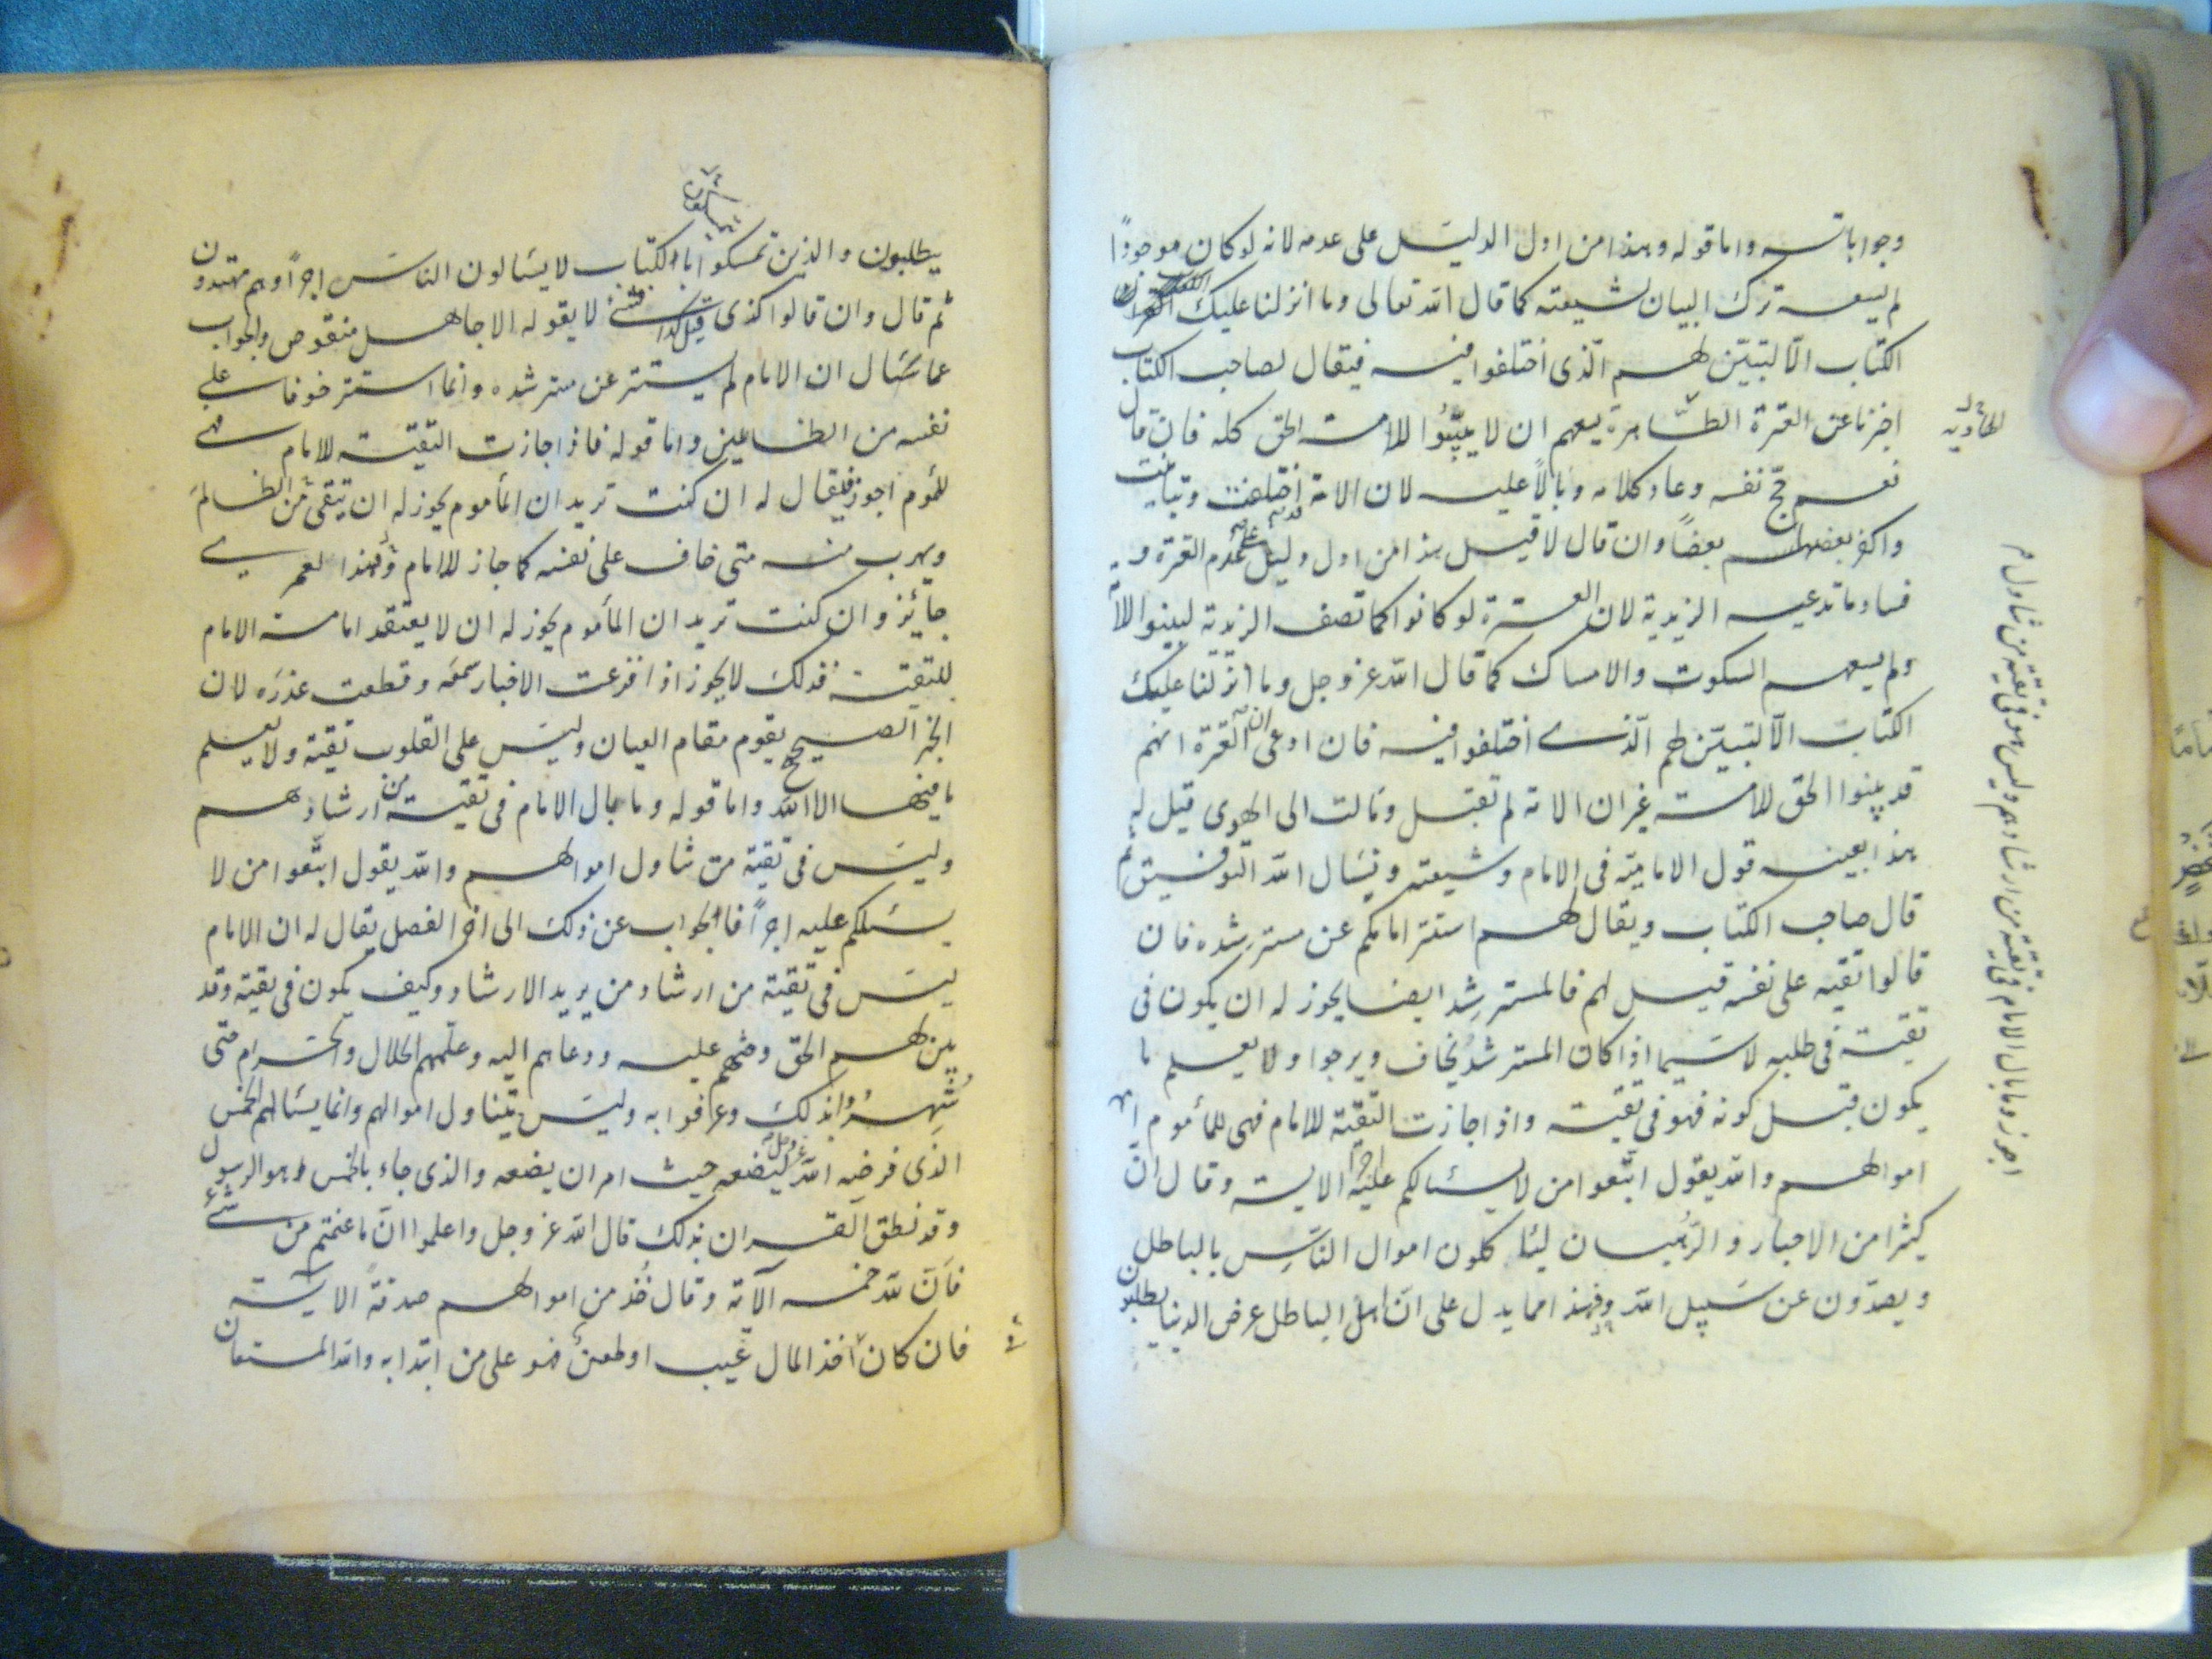 وجواباته واما قوله وهذا من اول الدليل على عدمه لانه لو كان موجودًا
لم يسعه ترك البيان لشيعته كما قال الله تعالى وما انزلنا عليك
الكتاب الّا لتبيّن لهم الّذى اختلفوا فيه فيقال لصاحب الكتاب
اخبرنا عن العترة الطّاهرة يسعهم ان لا يبيّنُوا للامة الحق كله فان قال
نعم حجّ نفسه وعاد كلامه وبالًا عليه لان الامة قد اختلفت وتباينت
واكفر بعضها بعضًا وان قال لا قيل هذا من اول دليل على عدم العترة و
فساد ما تدعيه الزيدية لان العترة لو كانوا كما تصف الزيدية لبينوا للامة
ولم يسعهم السكوت والامساك كما قال الله عز وجل وما انزلنا عليك
الكتاب الّا لتبيّن لهم الّذى اختلفوا فيه فان ادعى ان العترة انهم
قد بينوا الحق للامة غير ان الامة لم تقبل ومالت الى الهوى قيل له
هذا بعينه قول الامامية فى الامام وشيعته ونسال الله التوفيق ثم
قال صاحب الكتاب ويقال لهم استتر امامكم عن مسترشده فان
قالوا تقيه على نفسه قيل لهم فالمسترشِد ايضا يجوز له ان يكون فى
تقية فى طلبه لا سيّما اذا كان المسترشدُ يخاف ويرجوا ولا يعلم ما
يكون قبل كونه فهو فى تقية واذا جازت التقيّة للامام فهى للمأموم
اجوز وما بال الامام فى تقية من ارشادهم وليس هو فى تقية من تناول
اموالهم والله يقول اتّبعوا من لا يسئالكم عليه اجرا الاية وقال انّ
كثيرا من الاحبار والرّهبان ليئاكلون اموال النّاسِ بالباطل
ويصدّون عن سَبيل الله فهذا مما يدل على انّ اهل الباطل عرض الدنيا يطلبون
يطلبون والذين تمسكوا بالكتاب لا يسئالون الناس اجرًا وهم مهتدون
ثم قال وان قالوا كذى قيل كذا فشئ لا يقوله الا جاهل منقوص والجواب
عما سَئال ان الامام لم يستتر عن مسترشده وانما استتر خوفا على
نفسه من الظالمين واما قوله فاذا جازت التقيّة للامام فهى
للمأموم اجوز فيقال له ان كنت تريد ان المأموم يجوز له ان يتقى من الظالم
ويهرب منه متى خاف على نفسه كما جاز للامام فهذا لعمرى
جايز وان كنت تريد ان المأموم يجوز له ان لا يعتقد امامة الامام
للتقيّة فذلك لا يجوز اذا قرعت الاخبار سمعَه وقطعت عذرَه لان
الخبر الصحيح يقوم مقام العيان وليس على القلوب تقية ولا يعلم
ما فيها الا الله واما قوله وما بال الامام فى تقية من ارشادهم
وليس فى تقية من تناول اموالهم والله يقول اتّبعوا من لا
يسئلكم عليه اجرًا فالجواب عن ذلك الى اخر الفصل يقال له ان الامام
ليسَ فى تقية من ارشاد من يريد الارشاد وكيف يكون فى تقية وقد
بين لهم الحق وحثهم عليه ودعاهم اليه وعلّمهم الحلال والحرام حتى
شُهِرُوا بذلك وعرفوا به وليس يتناول اموالهم وانما يسئالهم الخمس
الذى فرضه الله عز وجل ليضعه حيث امر ان يضعه والذى جاء بالخمس هو الرسول
وقد نطق القران بذلك قال الله عز وجل واعلموا انّ ما غنمتم من شئ
فانّ لله خمسه الآية وقال خُذ من اموالهم صدقة الاية
فان كان فى اخذ المال عيب او طعن فهو على من ابتدا به والله المستعان